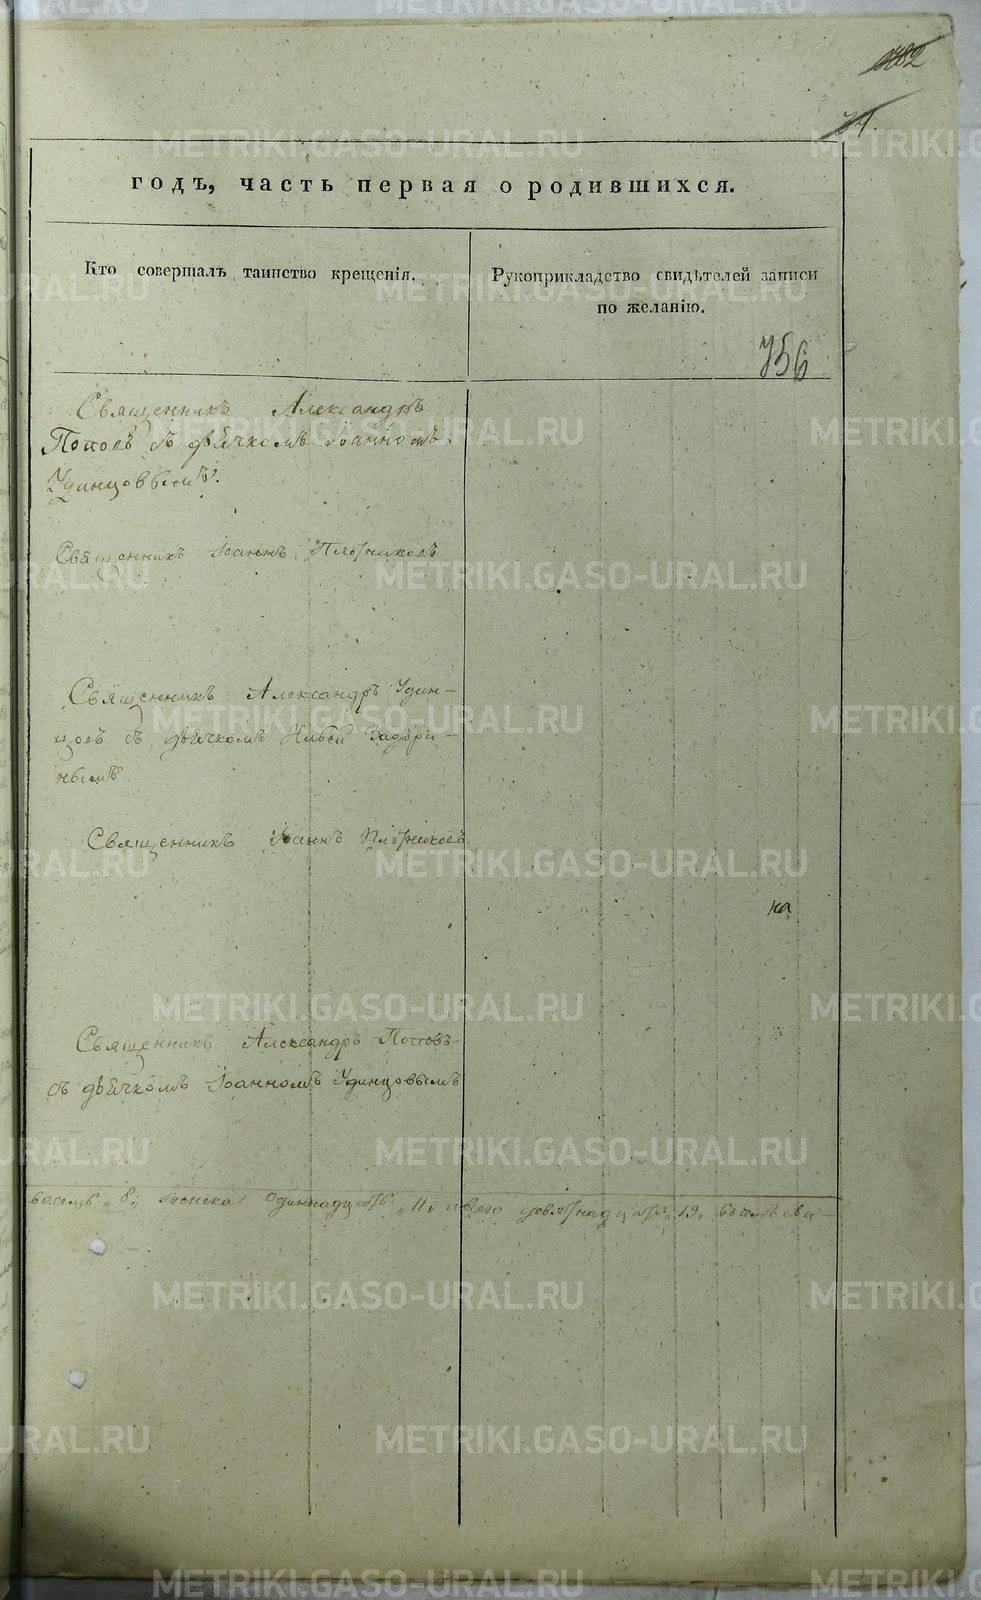 1782
74.
годъ, часть первая о родившихся.
Кто совершалъ таинство крещенія.
Рукоприкладство свидѣтелей записи
по желанію.
756
Священникъ Александръ
Поповъ съ дьячкомъ Іоанномъ
Удинцовымъ.
Священникъ Іоаннъ Плотниковъ.
Священникъ Александръ Удин-
цовъ съ дьячкомъ
нымъ
Священникъ Іоаннъ Плотниковъ.
на
Священникъ Александръ Поповъ
съ дьячкомъ Іоанномъ Удинцовымъ
восемь „8„ женска одиннадцать „11„ и всего девятнадцать „19„
METRIKI.GASO-URAL.RU